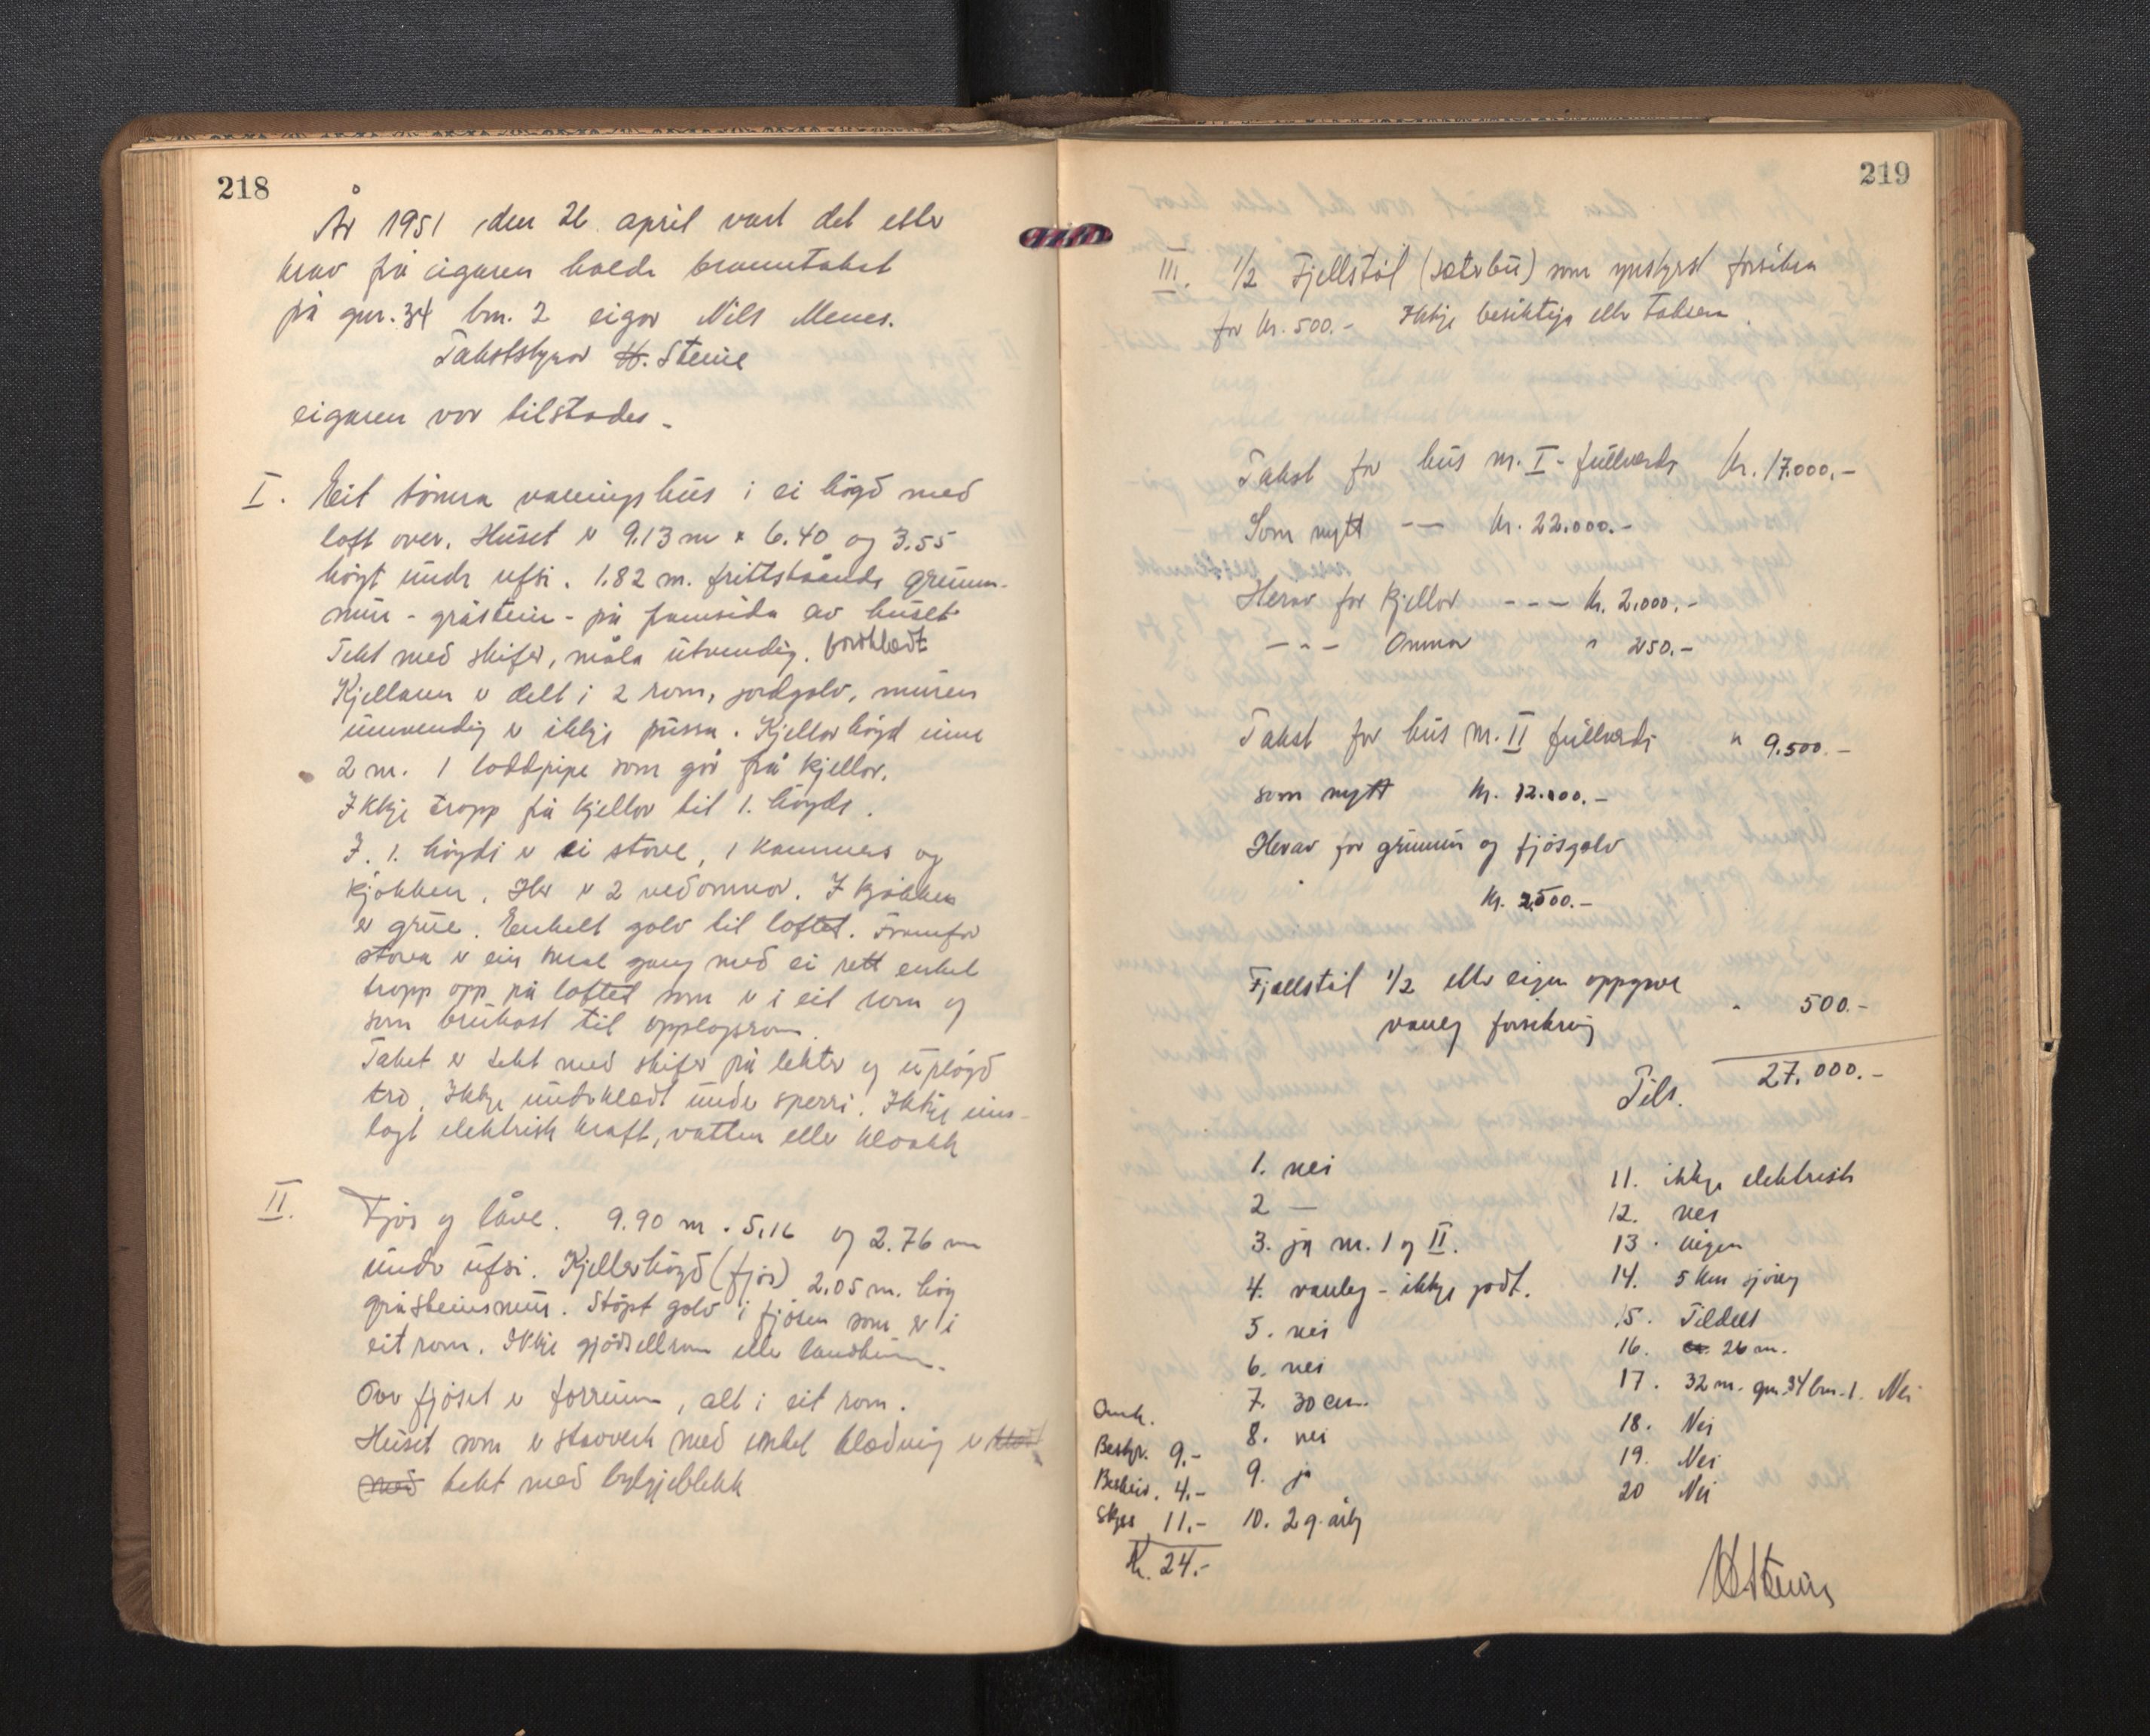 218
År 1951 den 26. april vart det etter
krav frå eigaren halde branntakst
på gnr. 34 bnr. 2 eigar Nils Menes.
Takstskynar H. Steine
eigaren var tilstades -
I. Eit tømra våningshus i ei høgd med
loft over. Huset er 9.13 m x 6.40 og 3.55
høgt under ufsi. 1.82 m. frittståande grunn-
mur - gråstein - på framsida av huset
Tekt med skifer, måla utvendig. bordklædt
Kjellaren er delt i 2 rom, jordgolv, muren
innvendig er ikkje pussa. Kjellarhøgd inne
2 m. 1 loddpipe som går frå kjellar.
Ikkje tropp frå kjellar til 1. høgde.
I. 1. høgdi er ei stove, 1 kammers og
kjøkken. Her er 2 vedomnar. I kjøkken
er grue. Enkelt golv til loftet. Framfor
stova er ein smal gang med ei rett enkel
tropp opp på loftet som er i eit rom og
som brukast til opplagsrom.
Taket er tekt med skifer på lekter og upløgd
tro. Ikkje underklædt under sperri. Ikkje inn-
lagt elektrisk kraft, vatten eller kloakk
II. Fjøs og låve. 9.90 m. 5.16 og 2.76 m
under ufsi. Kjellerhøgd (fjøs) 2.05 m. høg
gråsteinsmur. Støpt golv i fjøsen som er i
eit rom. Ikkje gjødsellrom eller landkum.
Over fjøset er forrum, alt i eit rom.
Huset som er stavverk med enkel klædning er klædt
med tekt med bylgjeblekk
219
III. 1/2 Fjellstøl (sæterbu) som ynskjest forsikra
for kr. 500.- Ikkje besiktiga eller taksera.
Takst for hus nr. I - fullverdi kr. 17.000.-
Som nytt -- kr. 22.000.-
Herav for kjellar --- kr. 2.000.-
- " - Omnar " 250.-
Takst for hus nr. II fullverdi " 9.500.-
som nytt kr. 12.000.-
Herav for grunnmur og fjøsgolv
kr. 2500.-
Fjellstøl 1/2 etter eigen oppgave
vanleg forsikring " 500.-
Tils. 27.000.-
1. nei
2 —
3. ja nr. I og II.
4. vanleg - ikkje godt.
5. nei
6. nei
7. 30 cm.
8. nei
9. ja
10. 2 g. årleg
11. ikkje elektrisk
12. nei
13. ingen
14. 5 km sjøveg
15. Tildelt
16. 26 m.
17. 32 m. gnr. 34 bnr. 1. Nei
18. Nei
19. Nei
20 Nei
Omk.
Bestyr. 9.-
Beskriv. 4.-
Skyss 11.-
Kr. 24.-
H Steine